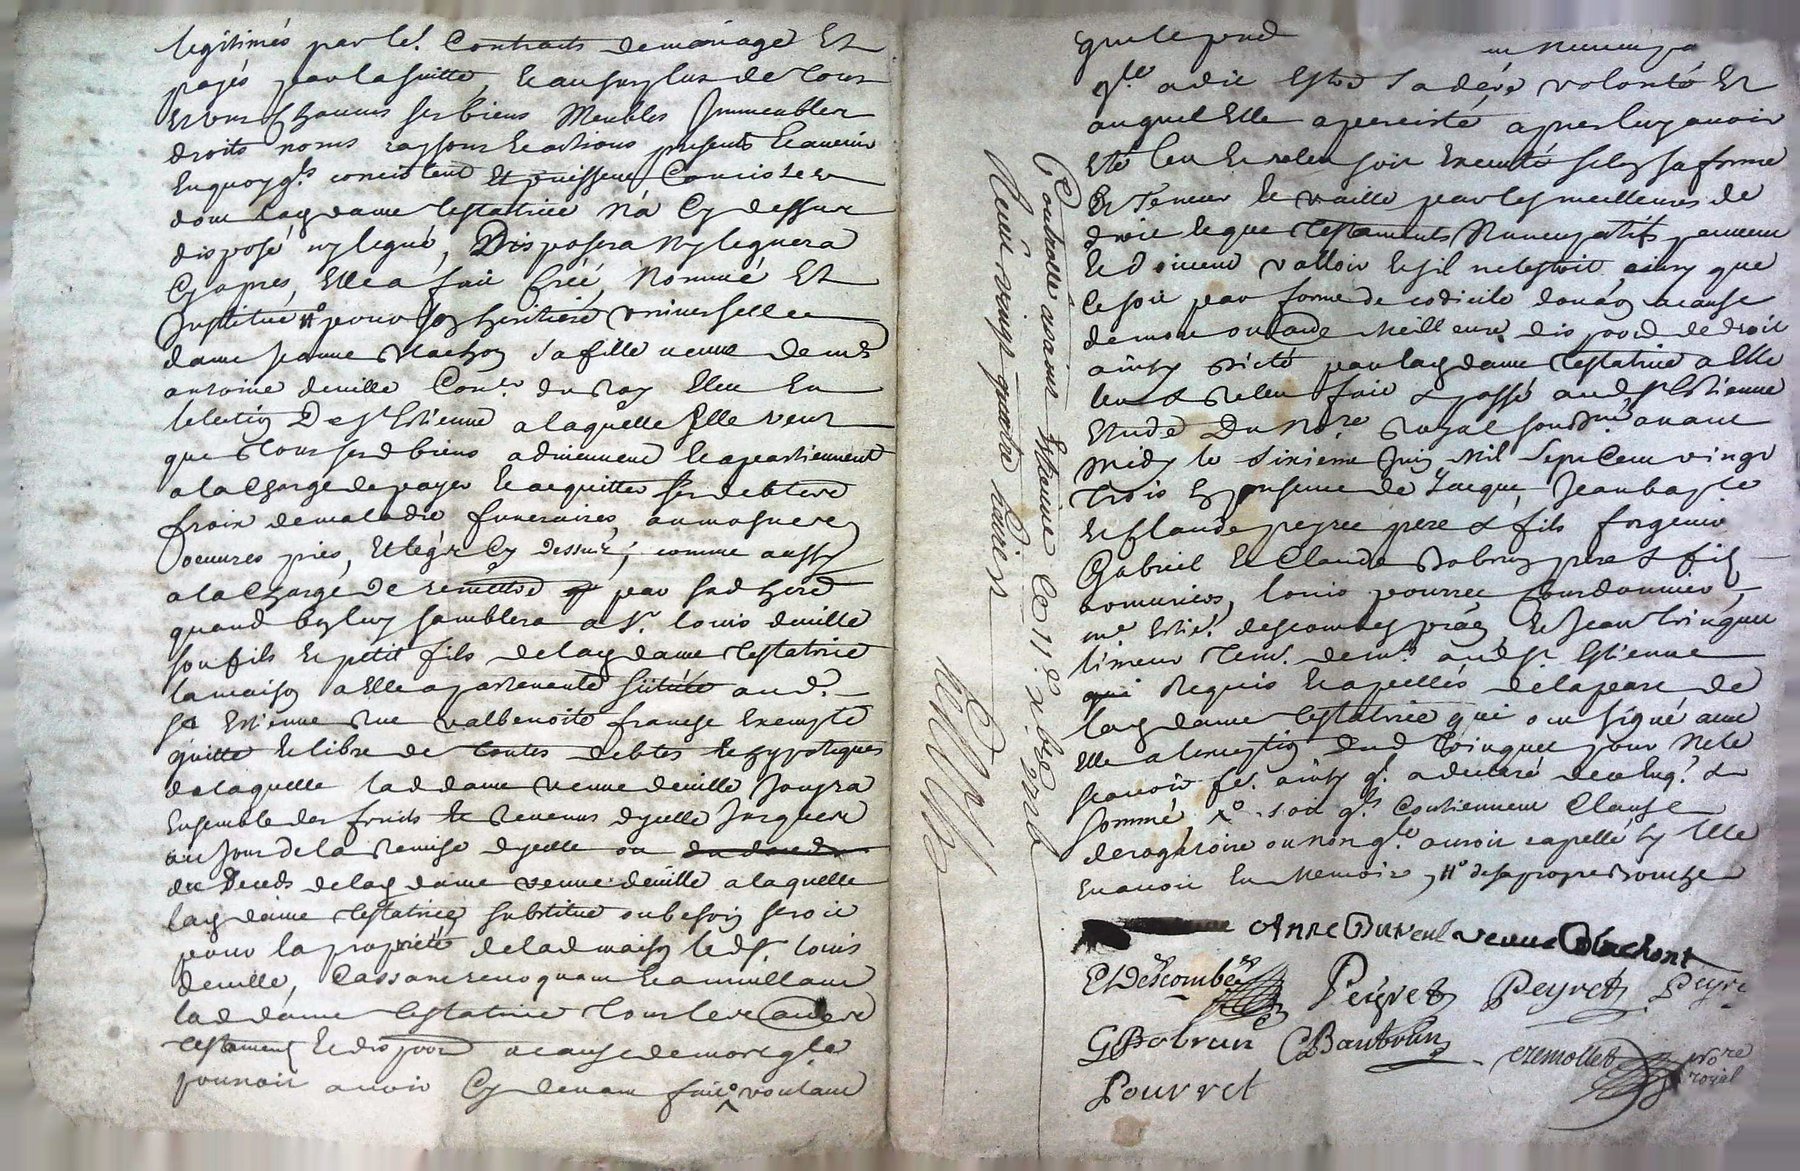 legitimes par les. Contracts de mariage Et
payés par la suitte, Et au surplus de tous
Et uns Chacuns ses biens Meubles Immeubles
droits noms raysons Et actions presents Et avenir
En quoy qls consistent Et puissent Consister
dont lad dame testatrice N'a Cy dessus
disposé ny legué, Disposera Ny leguera
Cy apres, Elle a fait Créé, Nommé Et
Institué pour son heritiere universelle
dame Jeanne Blachon sa fille veuve de mr
antoine deville Conler du Roy Eleu En
lelection De St Etienne a laquelle Elle veut
que tous sesd biens adviennent Et apartiennent
a la Charge de payer Et acquitter ses debtes
frais de maladie funeraires, aumosnes
oeuvres pies, Et legs Cy dessus; comme aussy
a la Charge de remettre par sad here
quand bon luy semblera a Sr. louis deville
son fils Et petit fils de lad dame testatrice
la maison a Elle apartenante située aud.
St Etienne Rue valbenoite franche Exempte
quitte Et libre de toutes debtes Et hypoteques
de laquelle lad dame veuve deville Jouyra
Ensemble des fruits Et Revenus dycelle Jusques
au Jour de la Remise dycelle ou
du Deceds de lad dame veuve deville a laquelle
lad dame testatrice substitue ou besoin seroit
pour la proprieté de lad maison led Sr. louis
deville, Cassant revoquant Et annullant
lad dame testatrice tous les autres
testaments Et dispoons a cause de mort qle
pouvoit avoir Cy devant fait voulant
que le pnt nuncupa
qle a dit Estre sa dere volonté Et
auquel Elle a percisté apres luy avoir
Eté leu Et releu soit Executé selon sa forme
Et Teneur Et vaille par les meilleures de
droit Et que testaments Nuncupatifs peuvent
Et doivent valloir Et sil ne lestoit, ainsy que
Ce soit par forme de codicile donaon a cause
de mort ou autre Meilleure dispoon de droit
ainsy dicté par lad dame testatrice a Elle
leu & releu fait & passé aud St Etienne
Etude Du Nore Royal soussné avant
midy le sixieme Juin Mil Sept Cent vingt
trois En presence de Jacque, Jean baptte
Et Claude peyret pere & fils forgeurs
Gabriel Et Claude Dobrun pere & fils
armuriers, louis pourret Courdonnier,
me Etie. descombes praen, Et Jean Trinquet
limeur tem. demts. aud St. Etienne
Requis Et apellés de la part de
lad dame testatrice qui ont signé avec
Elle a lexception dud Trinquet pour Ne le
scavoir fe. ainsy ql. a declaré de ce Enq. &
sommé soit qls Contiennent Clause
derogatoire ou non qle auroit rapellé sy Elle
En avoit Eu Memoire, de sa propre bouche
Anne Dureul veuve Blachont
EtDescombes Peyret Peyret Peyre
GDobrun CDaubrun cremollet nore royal
Pourret
Controllé a saint Estienne le 11e xbre 1726
Receu vingt quatre livres